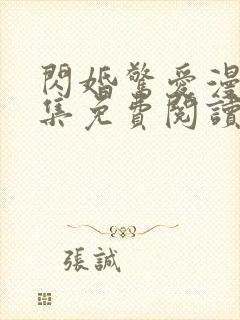 閃婚驚愛漫
集免費閱讀
張誠